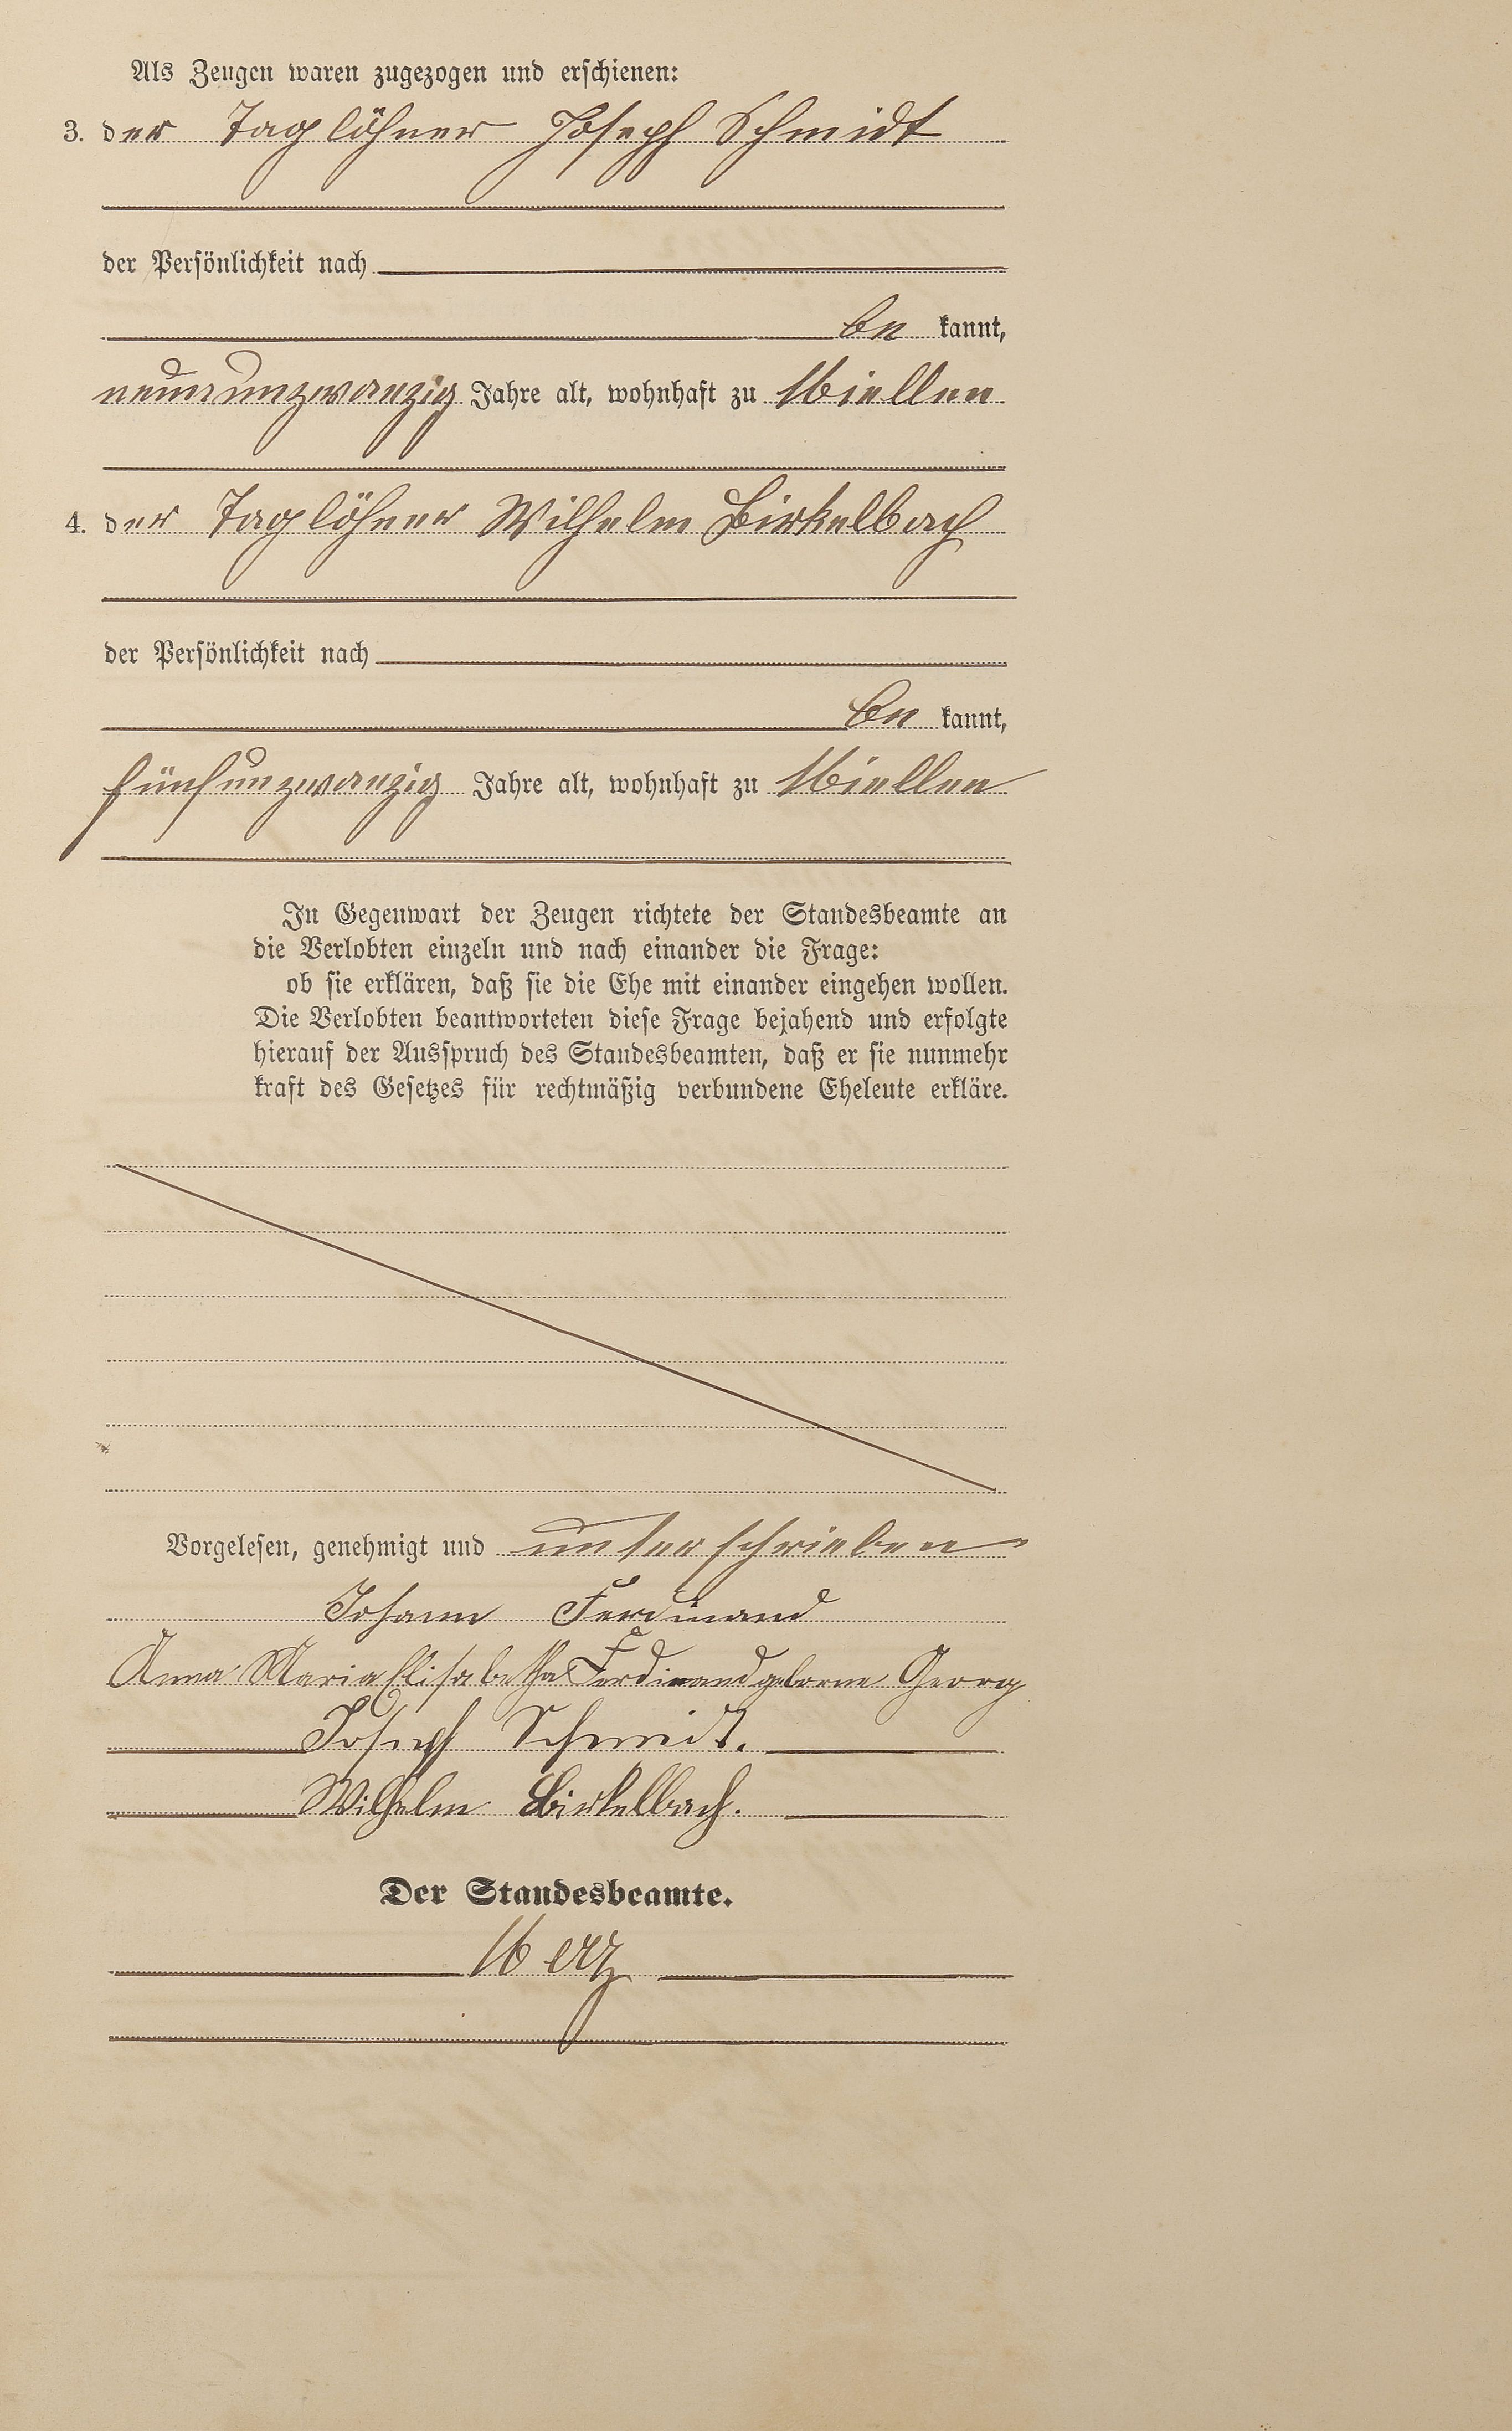 Als Zeugen waren zugezogen und erschienen:
3. der Taglöhner Joseph Schmidt
der Persönlichkeit nach
be kannt,
neunundzwanzig Jahre alt, wohnhaft zu Miellen
4. der Taglöhner Wilhelm Birkelbach
der Persönlichkeit nach
be kannt,
fünfunzwanzig Jahre alt, wohnhaft zu Miellen
In Gegenwart der Zeugen richtete der Standesbeamte an
die Verlobten einzeln und nach einander die Frage:
ob sie erklären, daß sie die Ehe mit einander eingehen wollen.
Die Verlobten beantworteten diese Frage bejahend und erfolgte
hierauf der Ausspruch des Standesbeamten, daß er sie nunmehr
kraft des Gesetzes für rechtmäßig verbundene Eheleute erkläre.
Vorgelesen, genehmigt und unterschrieben
Johann Ferdinand
Anna Maria Elisabetha Ferdinand geborne Georg
Joseph Schmidt.
Wilhelm Birkelbach.
Der Standesbeamte.
Merz